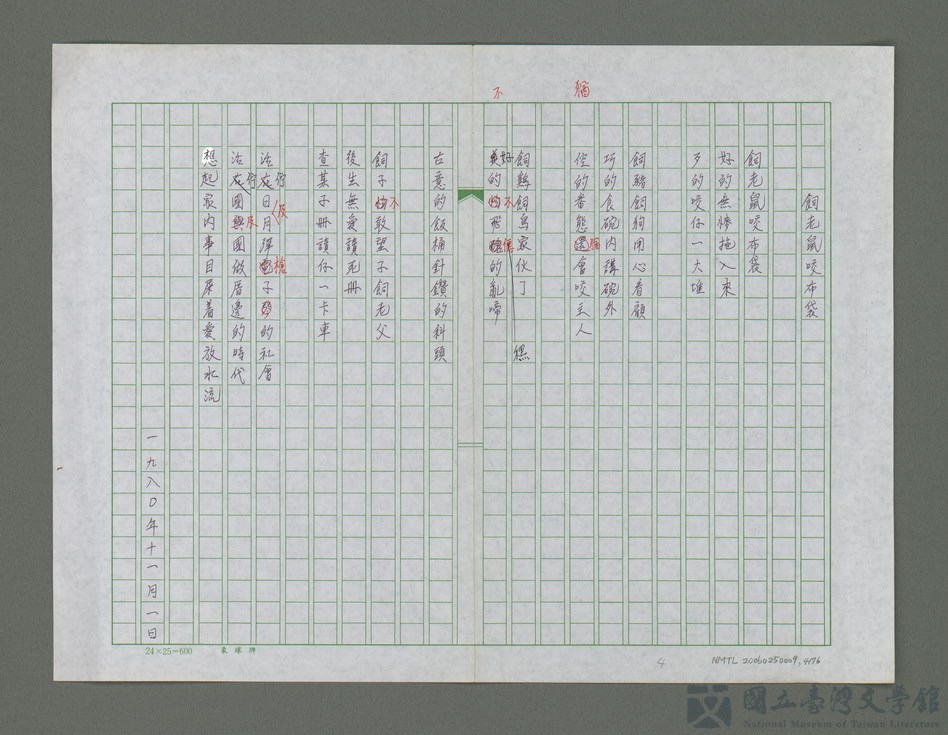 不 貓
飼老鼠咬布袋
飼老鼠咬布袋
好的無慘拖入來
歹的咬仔一大堆
飼豬飼狗用心看顧
巧的食碗內講碗外
悾的番態還會咬主人
飼鷄飼鳥家伙了
的飛的亂啼
古意的飯桶針鑽的料頭
飼子不敢望子飼老父
後生無愛讀死冊
查某子冊讀仔一卡車
活在日月彈子的社會
活在國與國做厝邊的時代
想起家內事目屎著愛放水流
一九八〇年十一月一日
24×25=600
4
NMTL 20060250009, 4176
國立臺灣文學館
National Museum of Taiwan Literature